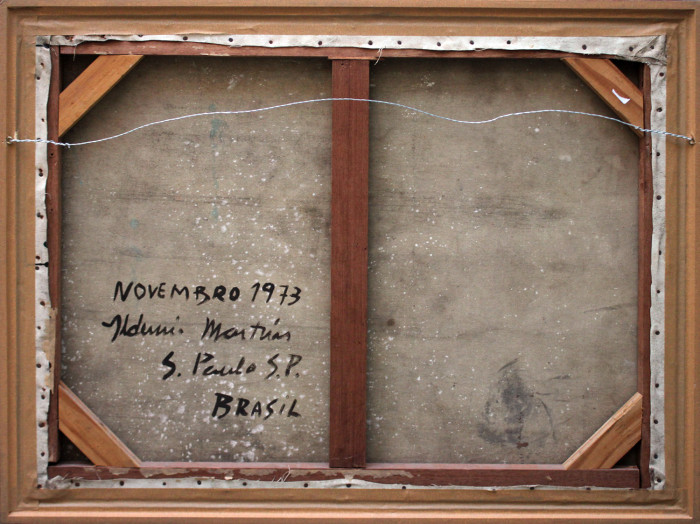 NOVEMBRO 1973
Aldemir Martins
S. Paulo S.P.
BRASIL